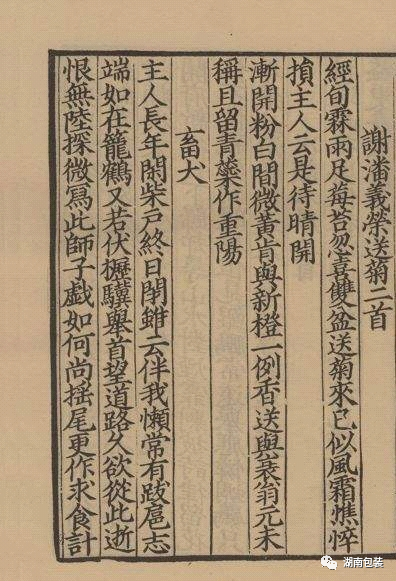 謝潘義榮送菊二首
經旬霖雨足莓苔忽喜雙盆送菊來已似風霜憔悴
損主人云是待晴開
漸開粉白間微黃肯與新橙一例香送與衰翁元未
稱且留青蘂作重陽
畜犬
主人長年閑柴戶終日閉雖云伴我懶常有跋扈志
端如在籠鶴又若伏櫪驥舉首望道路久欲從此逝
恨無陸探微寫此師子戲如何尚搖尾更作求食計
湖南包装